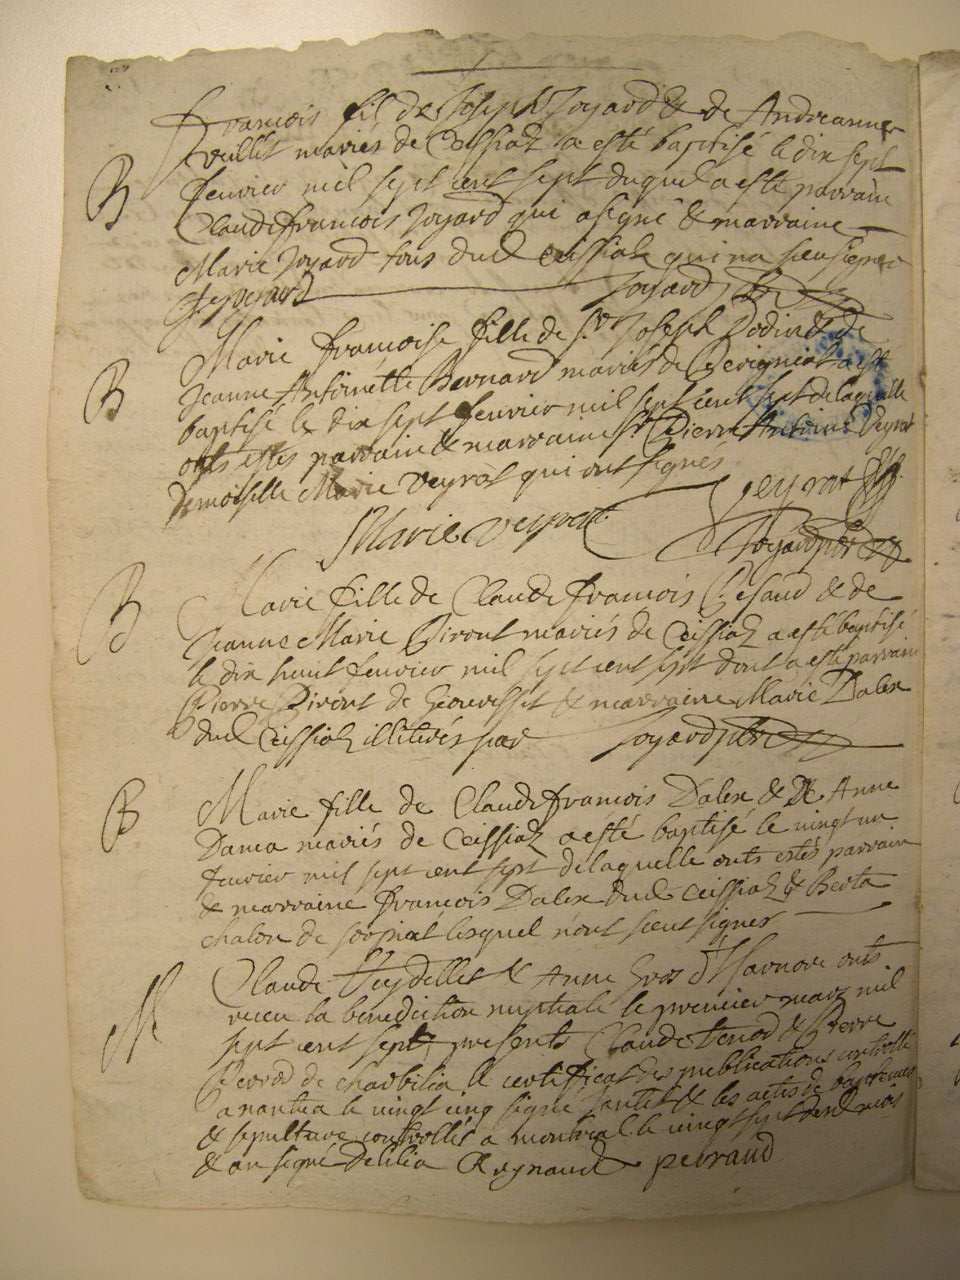 B
françois fils de Joseph Joyard & de Andreanne
vuillet mariés de Ceissiat a esté baptisé le dix sept
feuvrier mil sept cent sept duquel a esté parrain
Claude françois Joyard qui a signé & marraine
Marie Joyard tous dud Ceissiat qui n'a sceu signer
Joyard
B
Marie francoise fille de Sr Joseph Bodin & de
Jeanne Antoinette Bernard mariés de a esté
baptisé le dix sept feuvrier mil sept cent sept de laquelle
onts estes parrain & marraine Sr Pierre Antoine Veyrat
demoiselle Marie Veyrat qui ont signés
Veyrat
Marie Veyrat
Joyard
B
Marie fille de Claude francois & de
Jeanne Marie Piront mariés de Ceissiat a esté baptisé
le dix huit feuvrier mil sept cent sept dont a esté parrain
Pierre Piront de & marraine Marie Dalex
dud Ceissiat illiterés par Joyard
B
Marie fille de Claude francois Dalex & de Anne
Dama mariés de Ceissiat a esté baptisé le vingt un
feuvrier mil sept cent sept de laquelle onts estés parrain
& marraine francois Dalex dud Ceissiat & Berta
chalon de lesquel n'ont sceu signer
M
Claude & Anne gros d'Harnore onts
receu la benediction nuptiale le premier marz mil
sept cent sept presents Claude & Pierre
de charbilia le certificat des publications controllé
a nantua le vingt cinq signé & les actes de baptemes
& sepulture controllés a montreal le vingt sept dud mois
& an signé Delilia Reynaud perraud